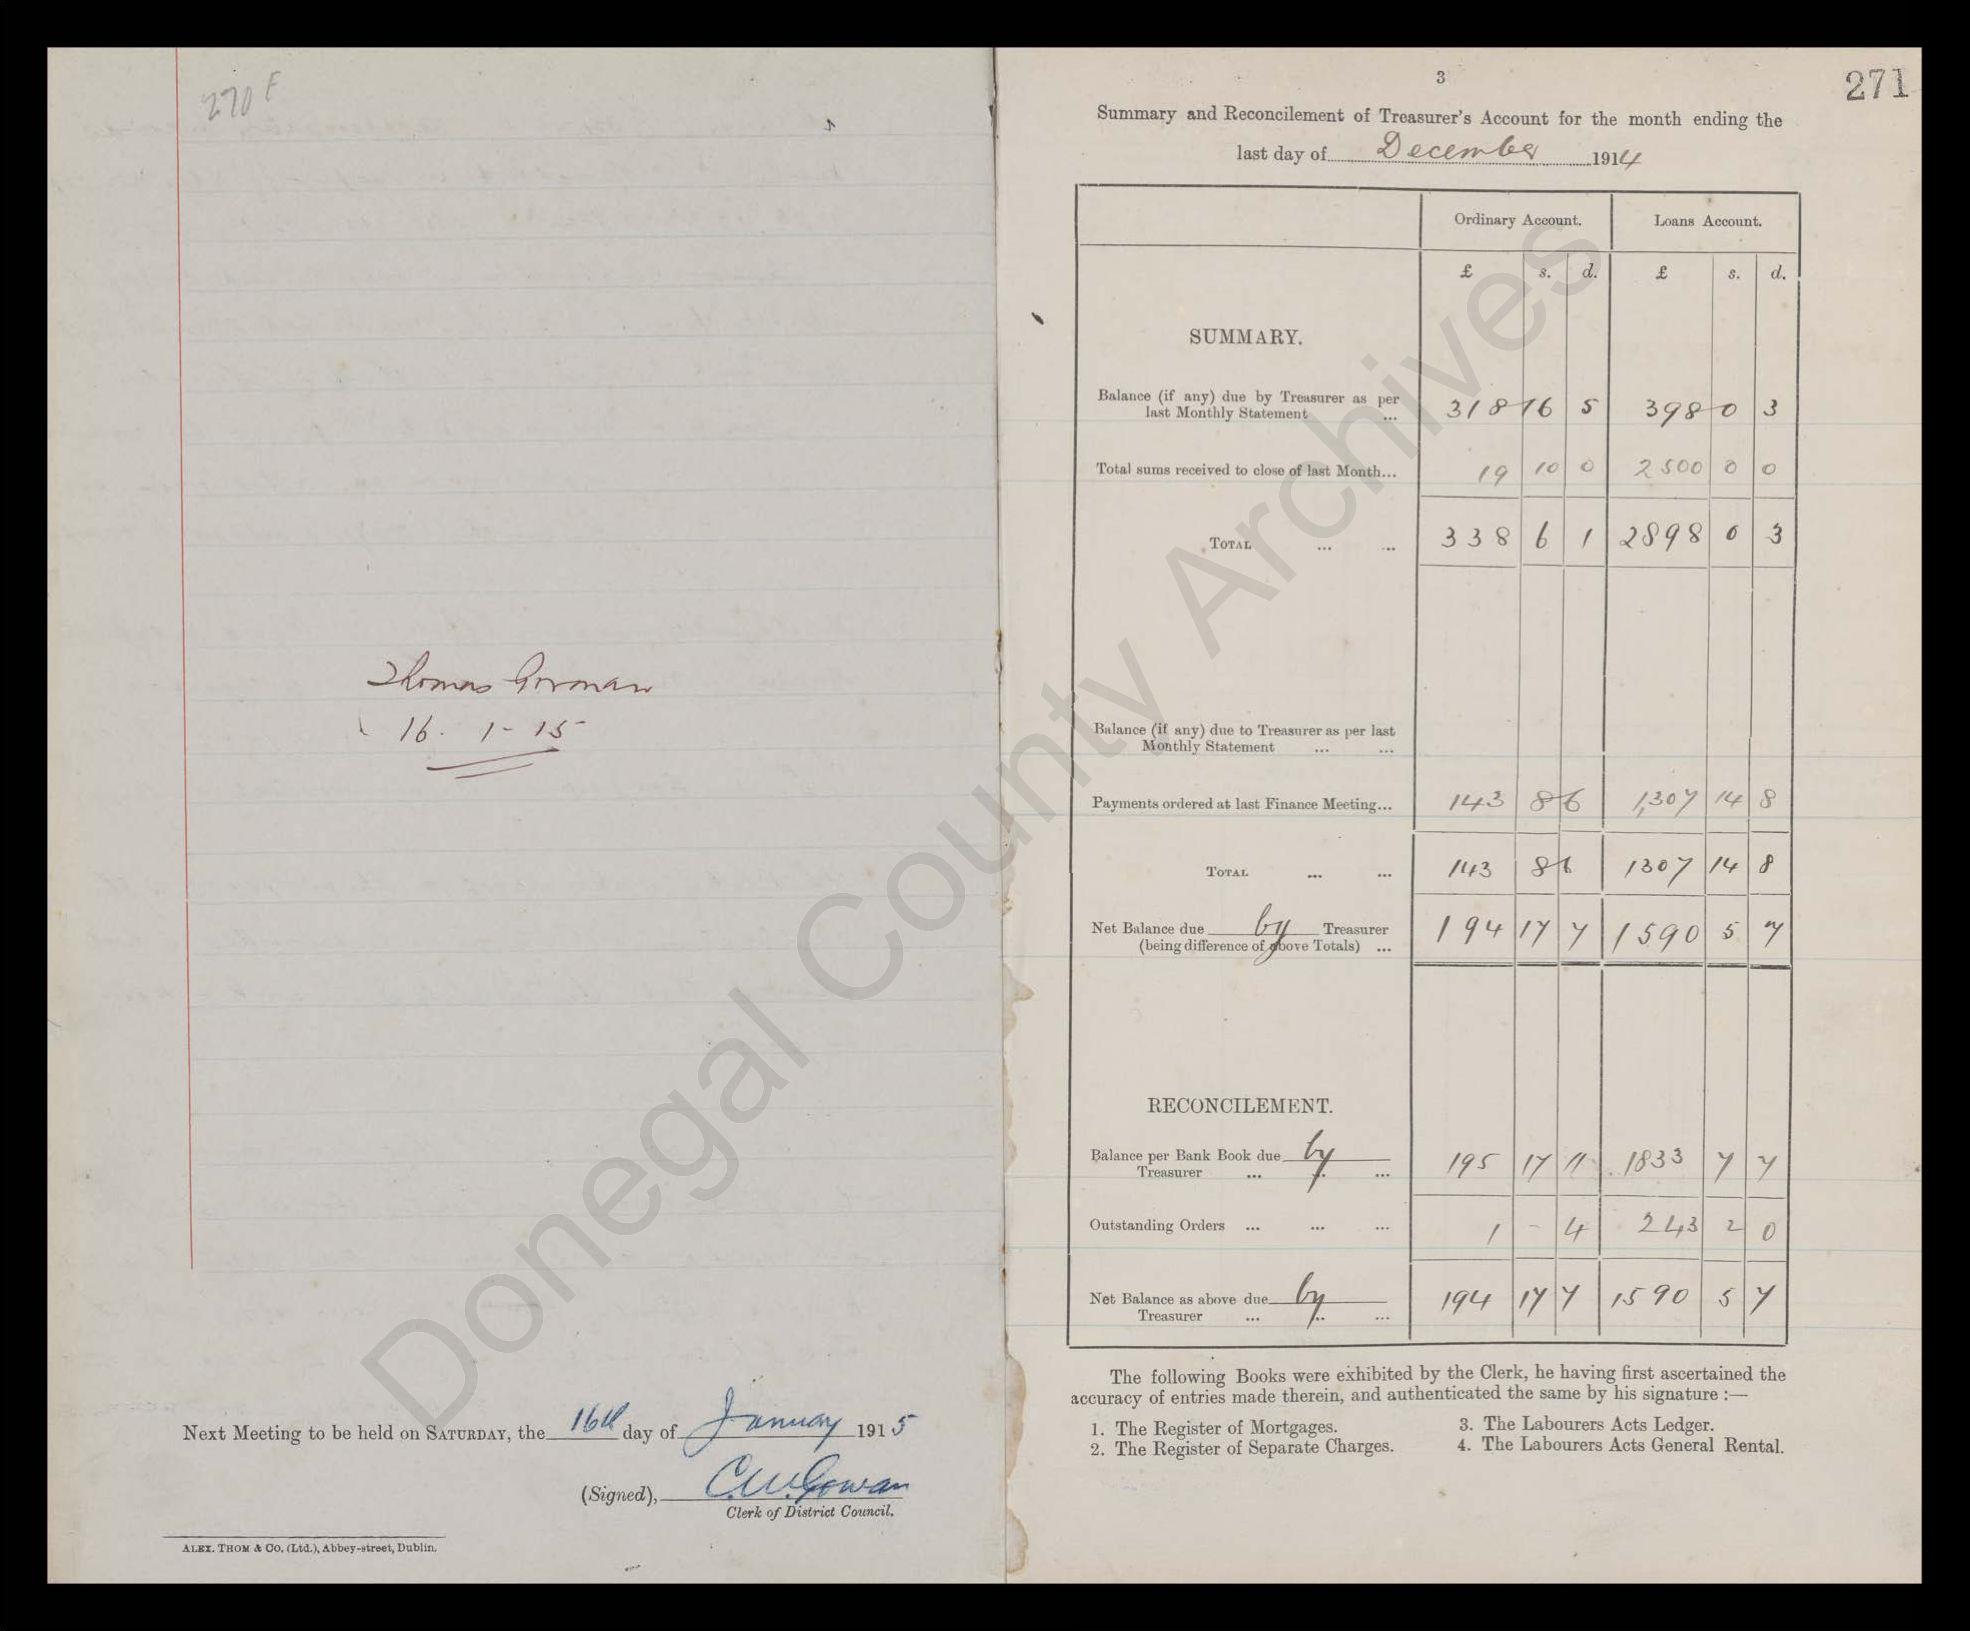 270F
Thomas Gorman
16. 1- 15
Next Meeting to be held on SATURDAY, the 16th day of January 1915
(Signed), C.W. Gowan
Clerk of District Council.
ALEX. THOM & CO. (Ltd.), Abbey-street, Dublin.
3
271
Summary and Reconcilement of Treasurer's Account for the month ending the
last day of December 1914
Ordinary Account. Loans Account.
£ s. d. £ s. d.
SUMMARY.
Balance (if any) due by Treasurer as per
last Monthly Statement ... 318 16 5 398 0 3
Total sums received to close of last Month... 19 10 0 2500 0 0
TOTAL ... ... 338 6 1 2898 0 3
Balance (if any) due to Treasurer as per last
Monthly Statement ... ...
Payments ordered at last Finance Meeting... 143 8 6 1,307 14 8
TOTAL ... ... 143 8 6 1307 14 8
Net Balance due by Treasurer
(being difference of above Totals) ... 194 17 7 1590 5 7
RECONCILEMENT.
Balance per Bank Book due by
Treasurer ... ... ... 195 17 11 1833 7 7
Outstanding Orders ... ... ... 1 - 4 243 2 0
Net Balance as above due by
Treasurer ... ... ... 194 17 7 1590 5 7
The following Books were exhibited by the Clerk, he having first ascertained the
accuracy of entries made therein, and authenticated the same by his signature :—
1. The Register of Mortgages. 3. The Labourers Acts Ledger.
2. The Register of Separate Charges. 4. The Labourers Acts General Rental.
Donegal County Archives